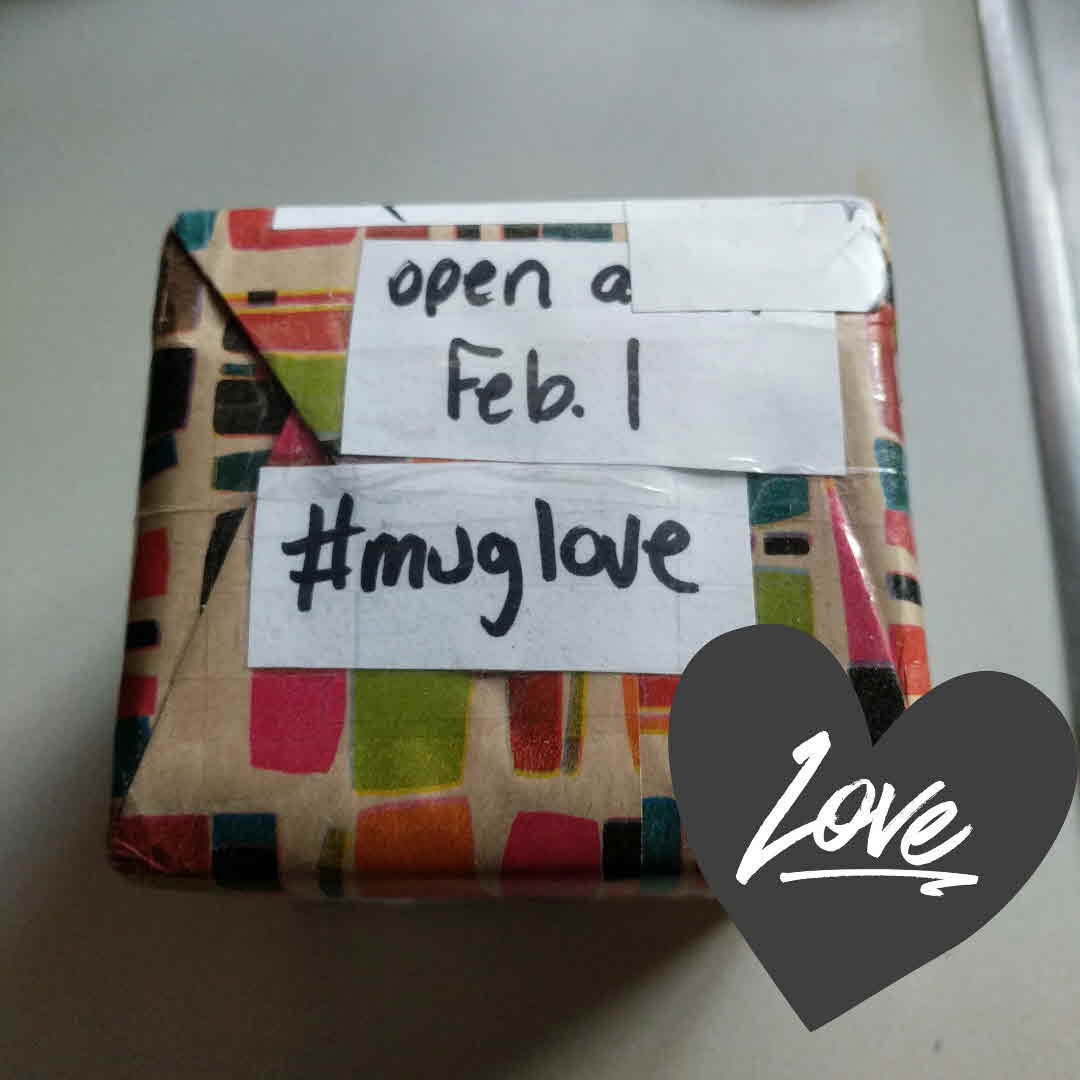 open
Feb. 1
#muglove
Love